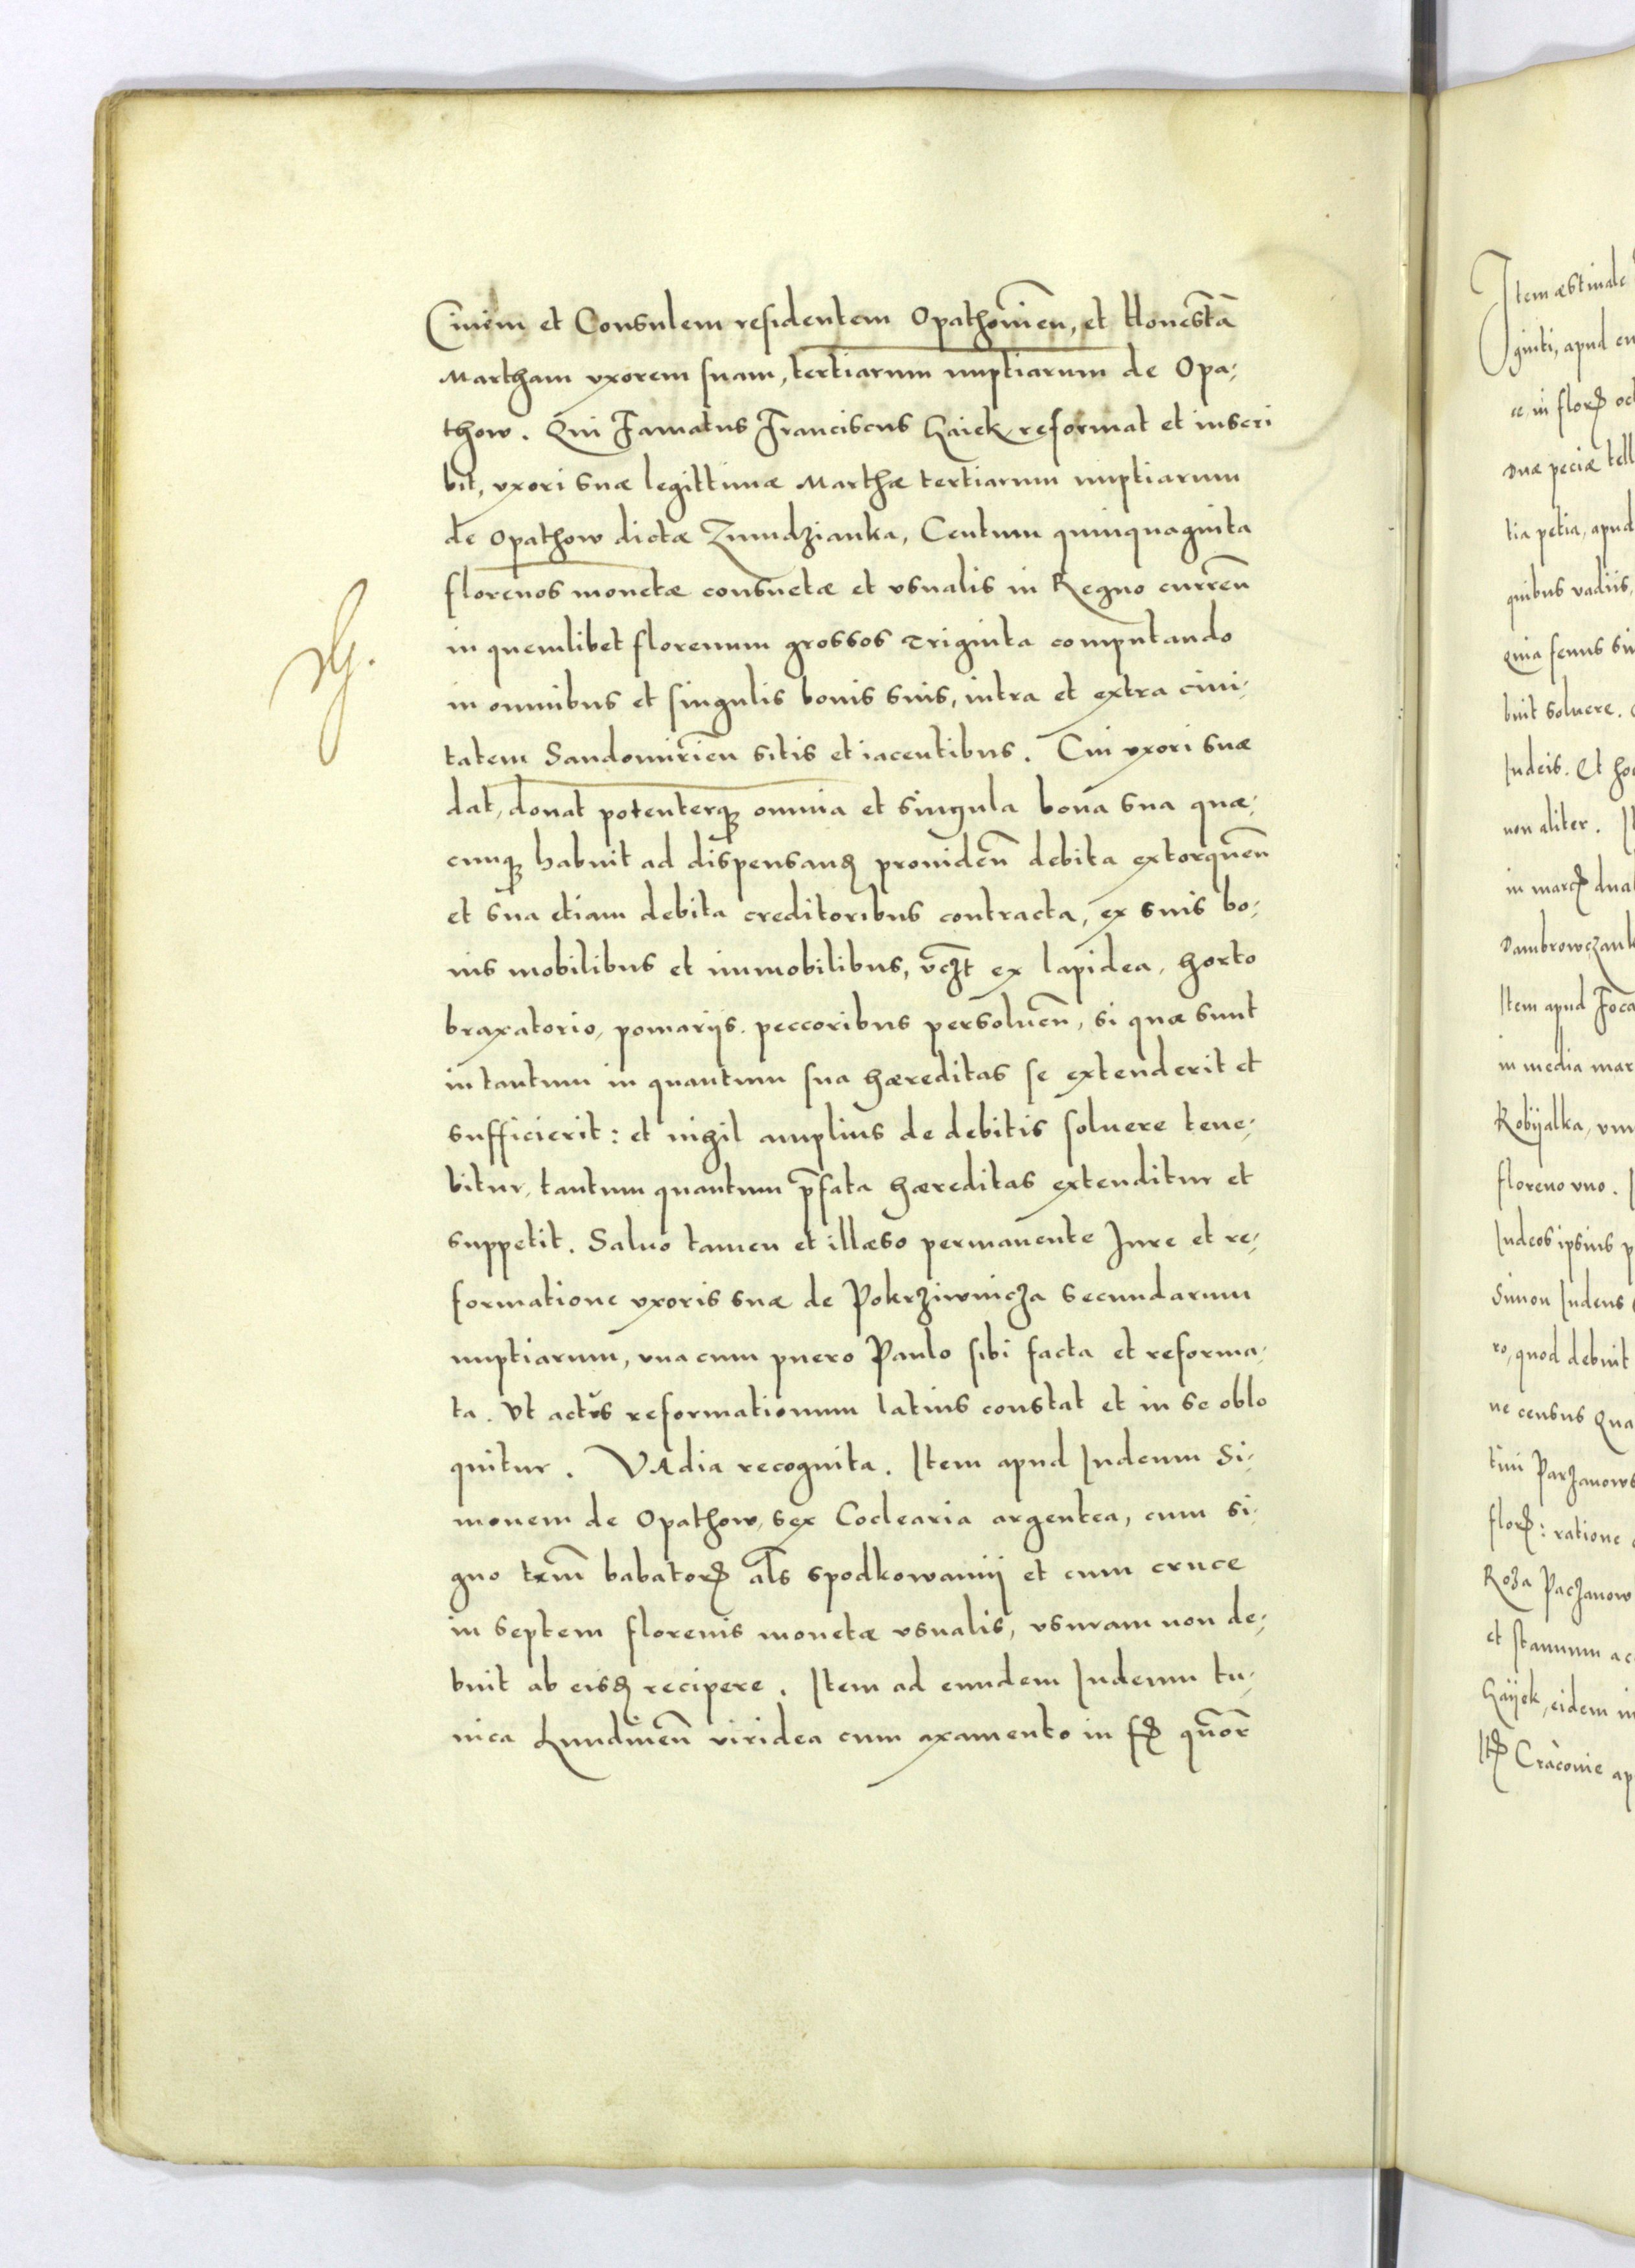 Ciuem et Consulem residentem Opathouien̄, et Honestā
Martham vxorem suam, tertiarum nuptiarum de Opa-
thow. Qui Famatus Franciscus Haiek reformat et inscri
bit, vxori suæ legittimæ Marthæ tertiarum nuptiarum
de Opathow dictæ Zmudzianka, Centum quinquaginta
florenos monetæ consuetæ et vsualis in Regno curren̄
in quemlibet florenum grossos Triginta computando
in omnibus et singulis bonis suis, intra et extra ciui-
tatem Sandomirien̄ sitis et iacentibus. Cui vxori suæ
dat, donat potenterqꝫ omnia et singula bona sua quæ-
cunqꝫ habuit ad dispensanꝫ prouiden̄ debita extorquen̄
et sua etiam debita creditoribus contracta, ex suis bo-
nis mobilibus et immobilibus, vꝫt ex lapidea, horto
braxatorio, pomarijs. peccoribus persoluen̄, si quæ sunt
in tantum in quantum sua hæreditas se extenderit et
sufficierit: et nihil amplius de debitis soluere tene-
bitur, tantum quantum p̄fata hæreditas extenditur et
suppetit. Saluo tamen et illæso permanente Jure et re-
formatione vxoris suæ de Pokrziwnicza secundarum
nuptiarum, vna cum puero Paulo sibi facta et reforma-
ta. Vt actus reformationum latius constat et in se oblo
quitur. VAdia recognita. Item apud Iudeum Si-
monem de Opathow, sex Coclearia argentea, cum si-
gno babatorꝫ al̄s spodkowamij et cum cruce
in septem florenis monetæ vsualis, vsuram non de-
buit ab eisꝫ recipere. Item ad eundem Iudeum tu-
nica Lundinen̄ viridea cum axamento in fꝫ quōr
Item æstiuale
gniti, apud
in florꝫ
Duæ peciæ
tia petia, apud
quibus vadiis,
Quia fenus
buit soluere.
Iudeis. Et
non aliter.
in marcꝫ
Dambrowczank
Item apud
in media mar
Robijalka,
floreno vno.
Iudeos ipsius
Simon Iudeus
ro, quod debuit
ne census
tini Parzanows
florꝫ: ratione
Roza Paczanow
et stannum
Haijek, eidem
Itꝫ Cracouie